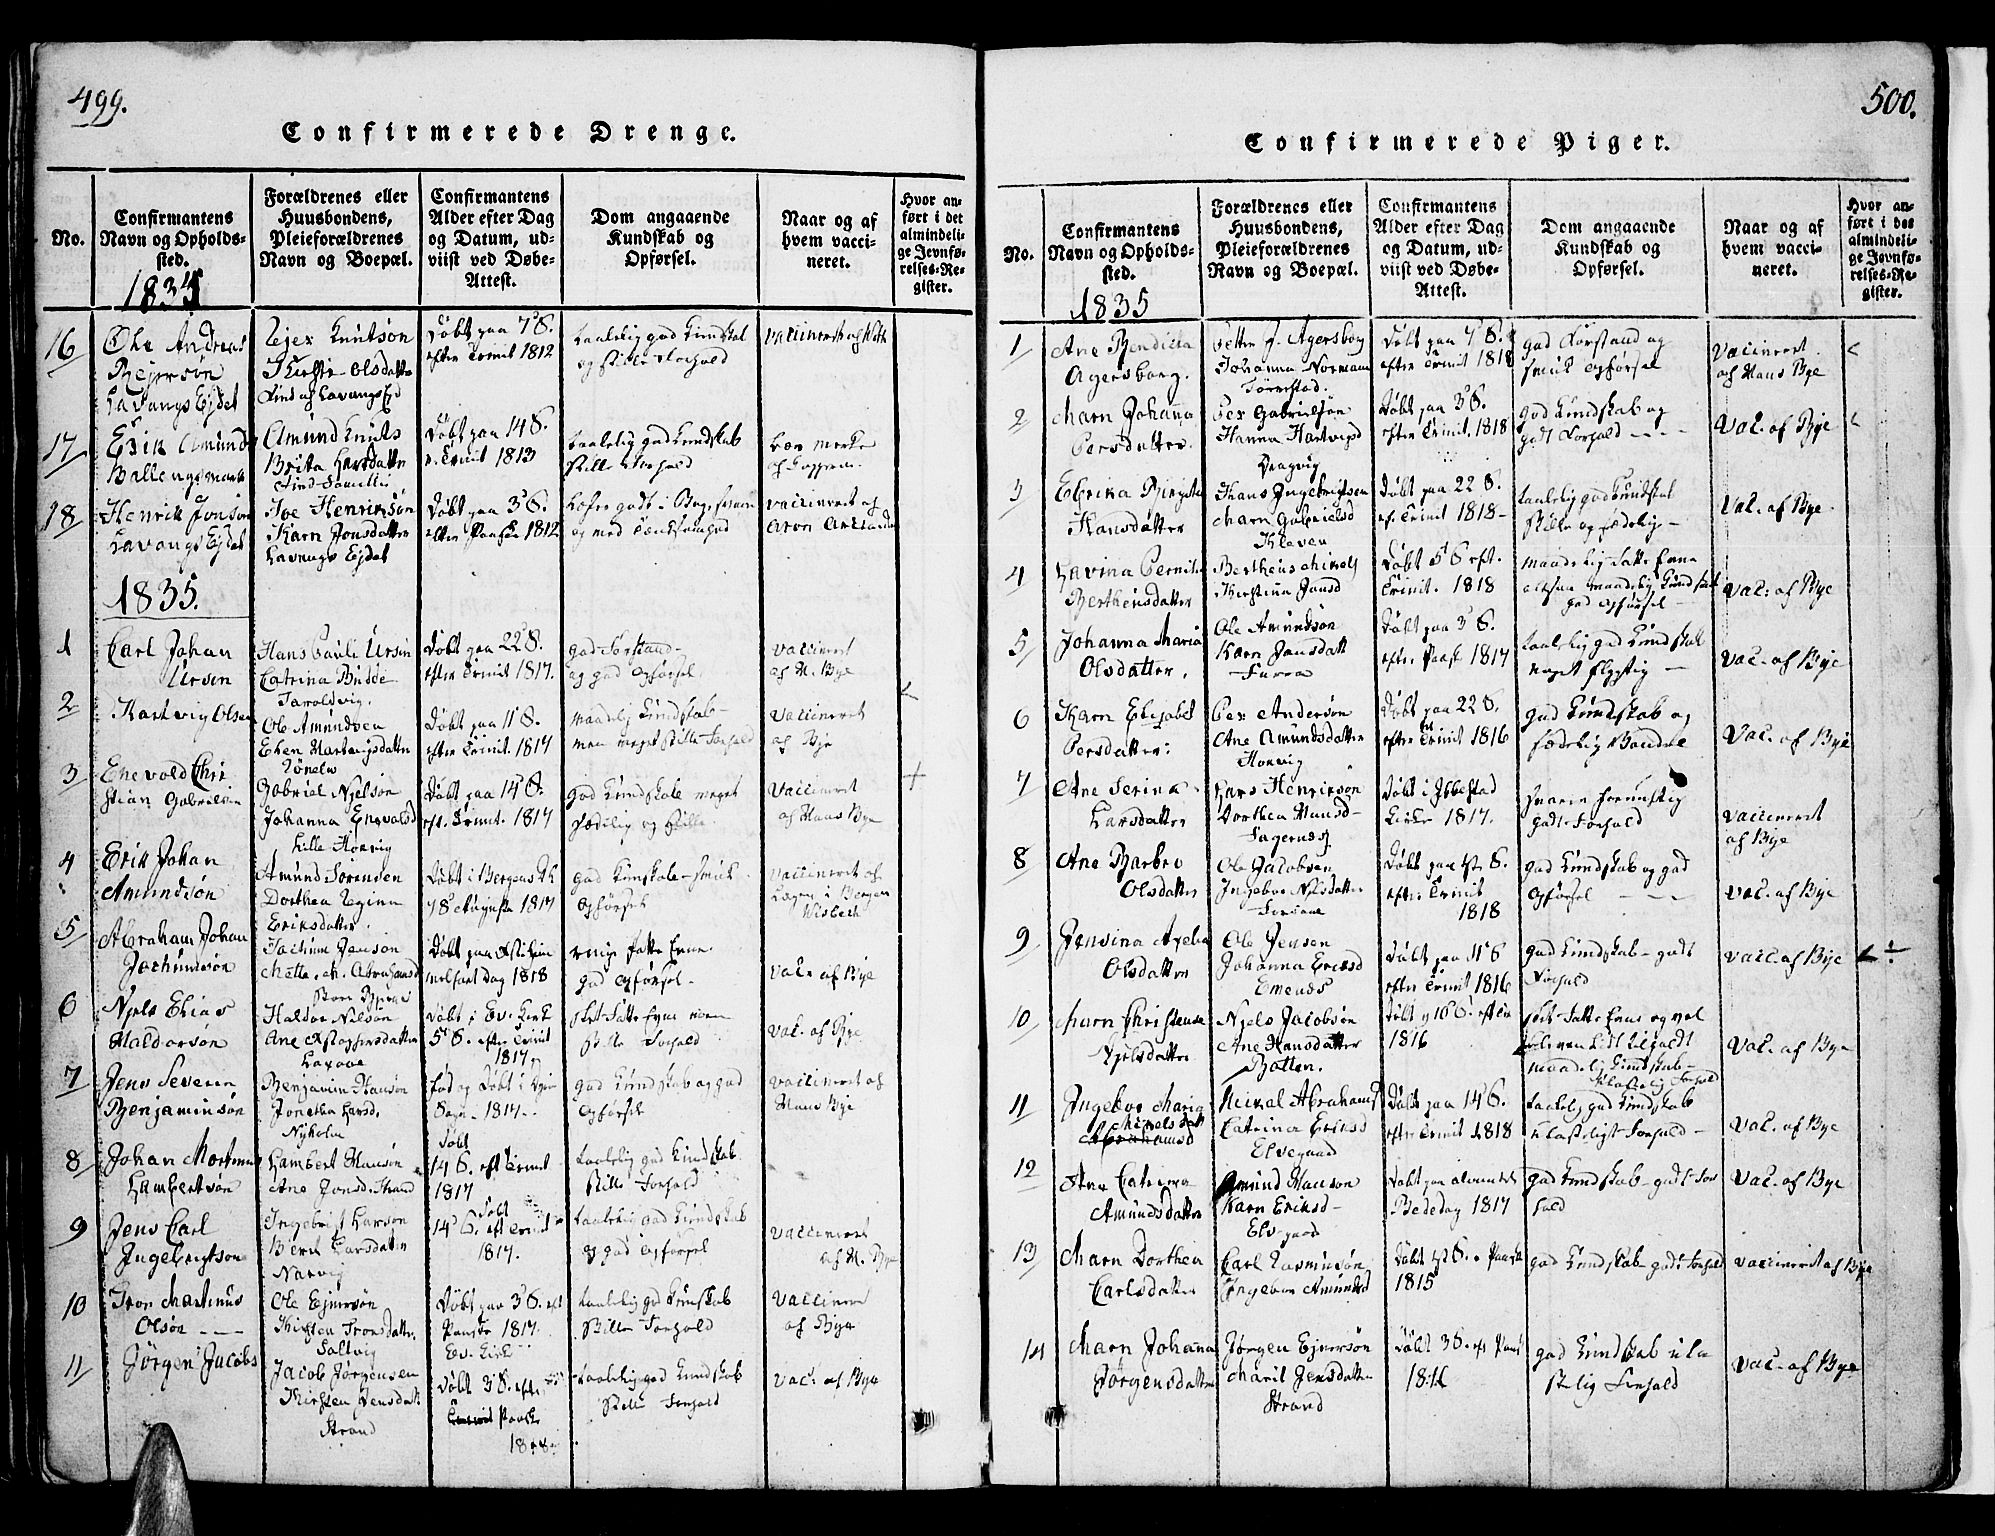 499.
Confirmerede Drenge.
No.
Confirmantens
Navn og Opholds-
sted.
Forældrenes eller
Huusbondens,
Pleieforældrenes
Navn og Boepæl.
Confirmantens
Alder efter Dag
og Datum, ud-
viist ved Døbe-
Attest.
Dom angaaende
Kundskab og
Opførsel.
Naar og af
hvem vacci-
neret.
Hvor an-
ført i det
almindeli-
ge Jevnfø-
relses-Re-
gister.
1834
16
Ole Andreas
Lavangs Ejdet
Knutsøn
Olsdatter
Døbt paa 7 S.
efter Trinit 1812
taalelig god
og stille Forhold
17
Erik Amunds
Amund Knuts
Brita Larsdatter
Døbt paa 14 S.
e. Trinit 1813
taalelig god Kundskab
stille Forhold
18
Henrik Jonsøn
Lavangs Ejdet
Joe Henriksøn
Karn Jonsdatter
Lavangs Ejdet
Døbt paa 3 S.
efter Paaske 1812
vaccineret af
1835.
1
Carl Johan
Ursin
Hans Pauli Ursin
Catrina Budde
Taraldvig.
Døbt paa 22 S.
efter Trinit 1817.
god Forstand
og god Opførsel.
vaccineret
af H. Bye
2
Hartvig Olsen
Ole Amundsen
Elen Hartvigsdatter
Døbt paa 11 S.
efter Trinit. 1817
maadelig Kundskab
men meget stille Forhold
vaccineret
af Bye
3
Enevold Chri
stian Gabrielsen
Gabriel Njelsøn
Johanna Enevolds
Lille Horvig
Døbt paa 14 S.
eft. Trinit. 1817
god Kundskab meget
sædelig og stille.
vaccineret
af Hans Bye
4
Erik Johan
Amundsøn
Amund Sørensen
Dorthea Regina
Eriksdatter.
Døbt i Bergens
18 August 1817
god Kundskab
Opførsel
vaccineret af
i Bergen
Wisbech
5
Abraham Johan
Jochumsøn
Jochum Jensøn
Mette M. Abrahamsd
Døbt paa Christi him
melfart Dag 1818
ringe Fatte Evne.
god Opførsel.
Vac. af Bye
6
Njels Elias
Haldorsøn
Haldor Nilsøn
Ane
Døbt i Ev. Kirk
5 S. efter Trinit
1817
slet Fatte Evne
stille Forhold
Vac. af Bye
7
Jens Severin
Benjaminsøn
Benjamin Hansøn
Jonetha Larsd.
Nyholm
fød og Døbt i
1817
god Kundskab og god
Opførsel
vaccineret af
Hans Bye
8
Johan Mortinus
Lambertsøn
Lambert Hansøn
Ane Jonsd. Strand
Døbt
14 S. eft Trinit
1817
taalelig god Kundskab
stille Forhold
9
Jens Carl
Ingebrigtsøn
Ingebrigt Larsøn
Berit Larsdatter
Narvig
Døbt
14 S. eft Trinit
1817.
taalelig god Kundskab
og god Opførsel
vaccineret
af H. Bye
10
Tron Martinus
Olsøn
Ole Ejnersøn
Kirsten Tronsdatter
Saltvig
Døbt paa 3 S. eft
Paaske 1817.
Ev. Kirk
taalelig god Kundskab
Stille Forhold
vaccineret
af Bye
11
Jørgen Jacobs
Jacob Jørgensen
Kirsten Jensdatt
Strand
Døbt 3 S. efter
Trinit Paaske
taalelig god Kundskab
Stille Forhold
vac. af Bye
500.
Confirmerede Piger.
No.
Confirmantens
Navn og Opholds-
sted.
Forældrenes eller
Huusbondens,
Pleieforældrenes
Navn og Boepæl.
Confirmantens
Alder efter Dag
og Datum, ud-
viist ved Døbe-
Attest.
Dom angaaende
Kundskab og
Opførsel.
Naar og af
hvem vacci-
neret.
Hvor an-
ført i det
almindeli-
ge Jevnfø-
relses-Re-
gister.
1835
1
Ane Bendicta
Agersborg.
Petter J. Agersborg
Johanna Normann
Tørrestad.
Døbt paa 7 S.
efter Trinit 1818
god Forstand og
smuk Opførsel
Vaccineret
af Hans Bye
2
Marn Johana
Persdatter
Per Gabrielsøn
Hanna Hartvigsd
Dragvig
Døbt paa 3 S.
efter Trinit. 1818
god Kundskab og
godt Forhold
Vac. af Bye
3
Elrika Birgitte
Hansdatter
Hans Ingebrigtsen
Marn Gabrielsd
Kleven
Døbt paa 22 S.
ef. Trinit 1818
taalelig god Kundskab
stille og sædelig
Vac. af Bye
4
Lavina Pernilla
Berthinsdatter
Bertheus Mikels
Kierstina Jonsd
Døbt 5 S eft.
Trinit. 1818
maadelig Fatte Evne
altsaa maadelig Kundskab
god Opførsel
Vac. af Bye
5
Johanna Maria
Olsdatter.
Ole Amundsøn
Karn Jonsdatt
Furra
Døbt paa 3 S.
efter Paask 1817
taalelig god Kundskab
noget flygtig
Vac. af Bye
6
Karn Elisabet
Persdatter.
Per Andersøn
Ane Amundsdatter
Horvig
Døbt paa 22 S.
efter Trinit 1816
god Kundskab og
sædelig Vandel
Vac. af Bye
7
Ane Serina
Larsdatter
Lars Henriksøn
Dorthea Hansd
Fagernes
Døbt i Ibbestad
Kirke 1817.
godt Forhold
vaccineret
af Bye
8
Ane Barbro
Olsdatter
Ole Jacobsen
Ingebor Nilsdatter
Døbt paa 4 S.
efter Trinit
1818
god Kundskab og god
Opførsel
Vac. af Bye
9
Jensina Axelia
Olsdatter
Ole Jensen
Johanna Eriksd
Emenes
Døbt paa 11 S
efter Trinit 1816
god Kundskab godt
Forhold
vacc af Bye
10
Marn Christense
Njelsdatter
Njels Jacobsøn
Ane Hansdatter
Botten.
1816
slet Fatte Evne og vel
maadelig Kundskab
Vac. af Bye
11
Ingebor Maria
Mikelsdatt
Abrahamsd
Mikal Abrahams
Catrina Eriksd
Elvegaard
Døbt paa 14 S.
efter Trinit 1818
taalelig god Kundskab
ulasteligt Forhold
Vac. af Bye
12
Ane Catrina
Amundsdatter
Amund Hansøn
Karn Eriksd
Elvegaard
Døbt paa almindel
Bededag 1817
god Kundskab godt For
hold
Vac. af Bye
13
Marn Dorthea
Carlsdatter
Carl Rasmusøn
Ingebor Amundsd
Døbt 4 S. e Paaske
1815
god Kundskab godt Forhold
vaccineret af Bye
14
Marn Johana
Jørgensdatter
Jørgen Ejnersøn
Marit Jensdatter
Strand
Døbt 3 S. eft Paas
god Kundskab ula
stelig Forhold
vac. af Bye